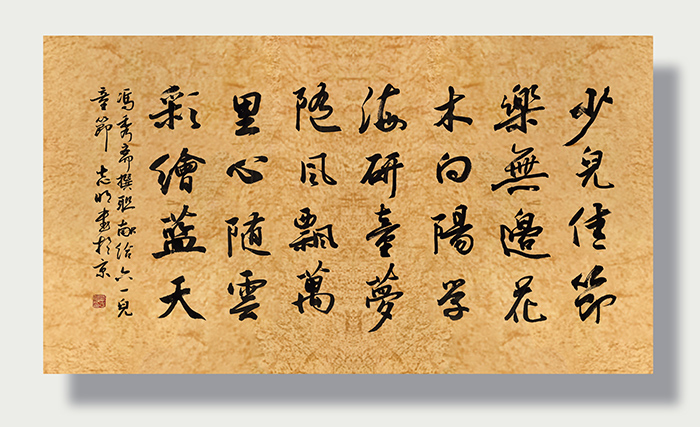 少兒佳節
樂無邊花
木向陽学
海研童夢
随风飄萬
里心随雲
彩繪藍天
馮秀斋撰联献给六一兒
童節 志明書於京